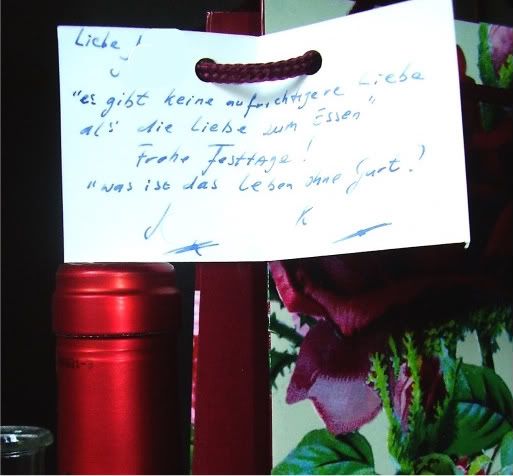 Liebe !
"es gibt keine aufrichtigere Liebe
als die Liebe zum Essen"
Frohe Festtage!
"was ist das Leben ohne Gurt!
K